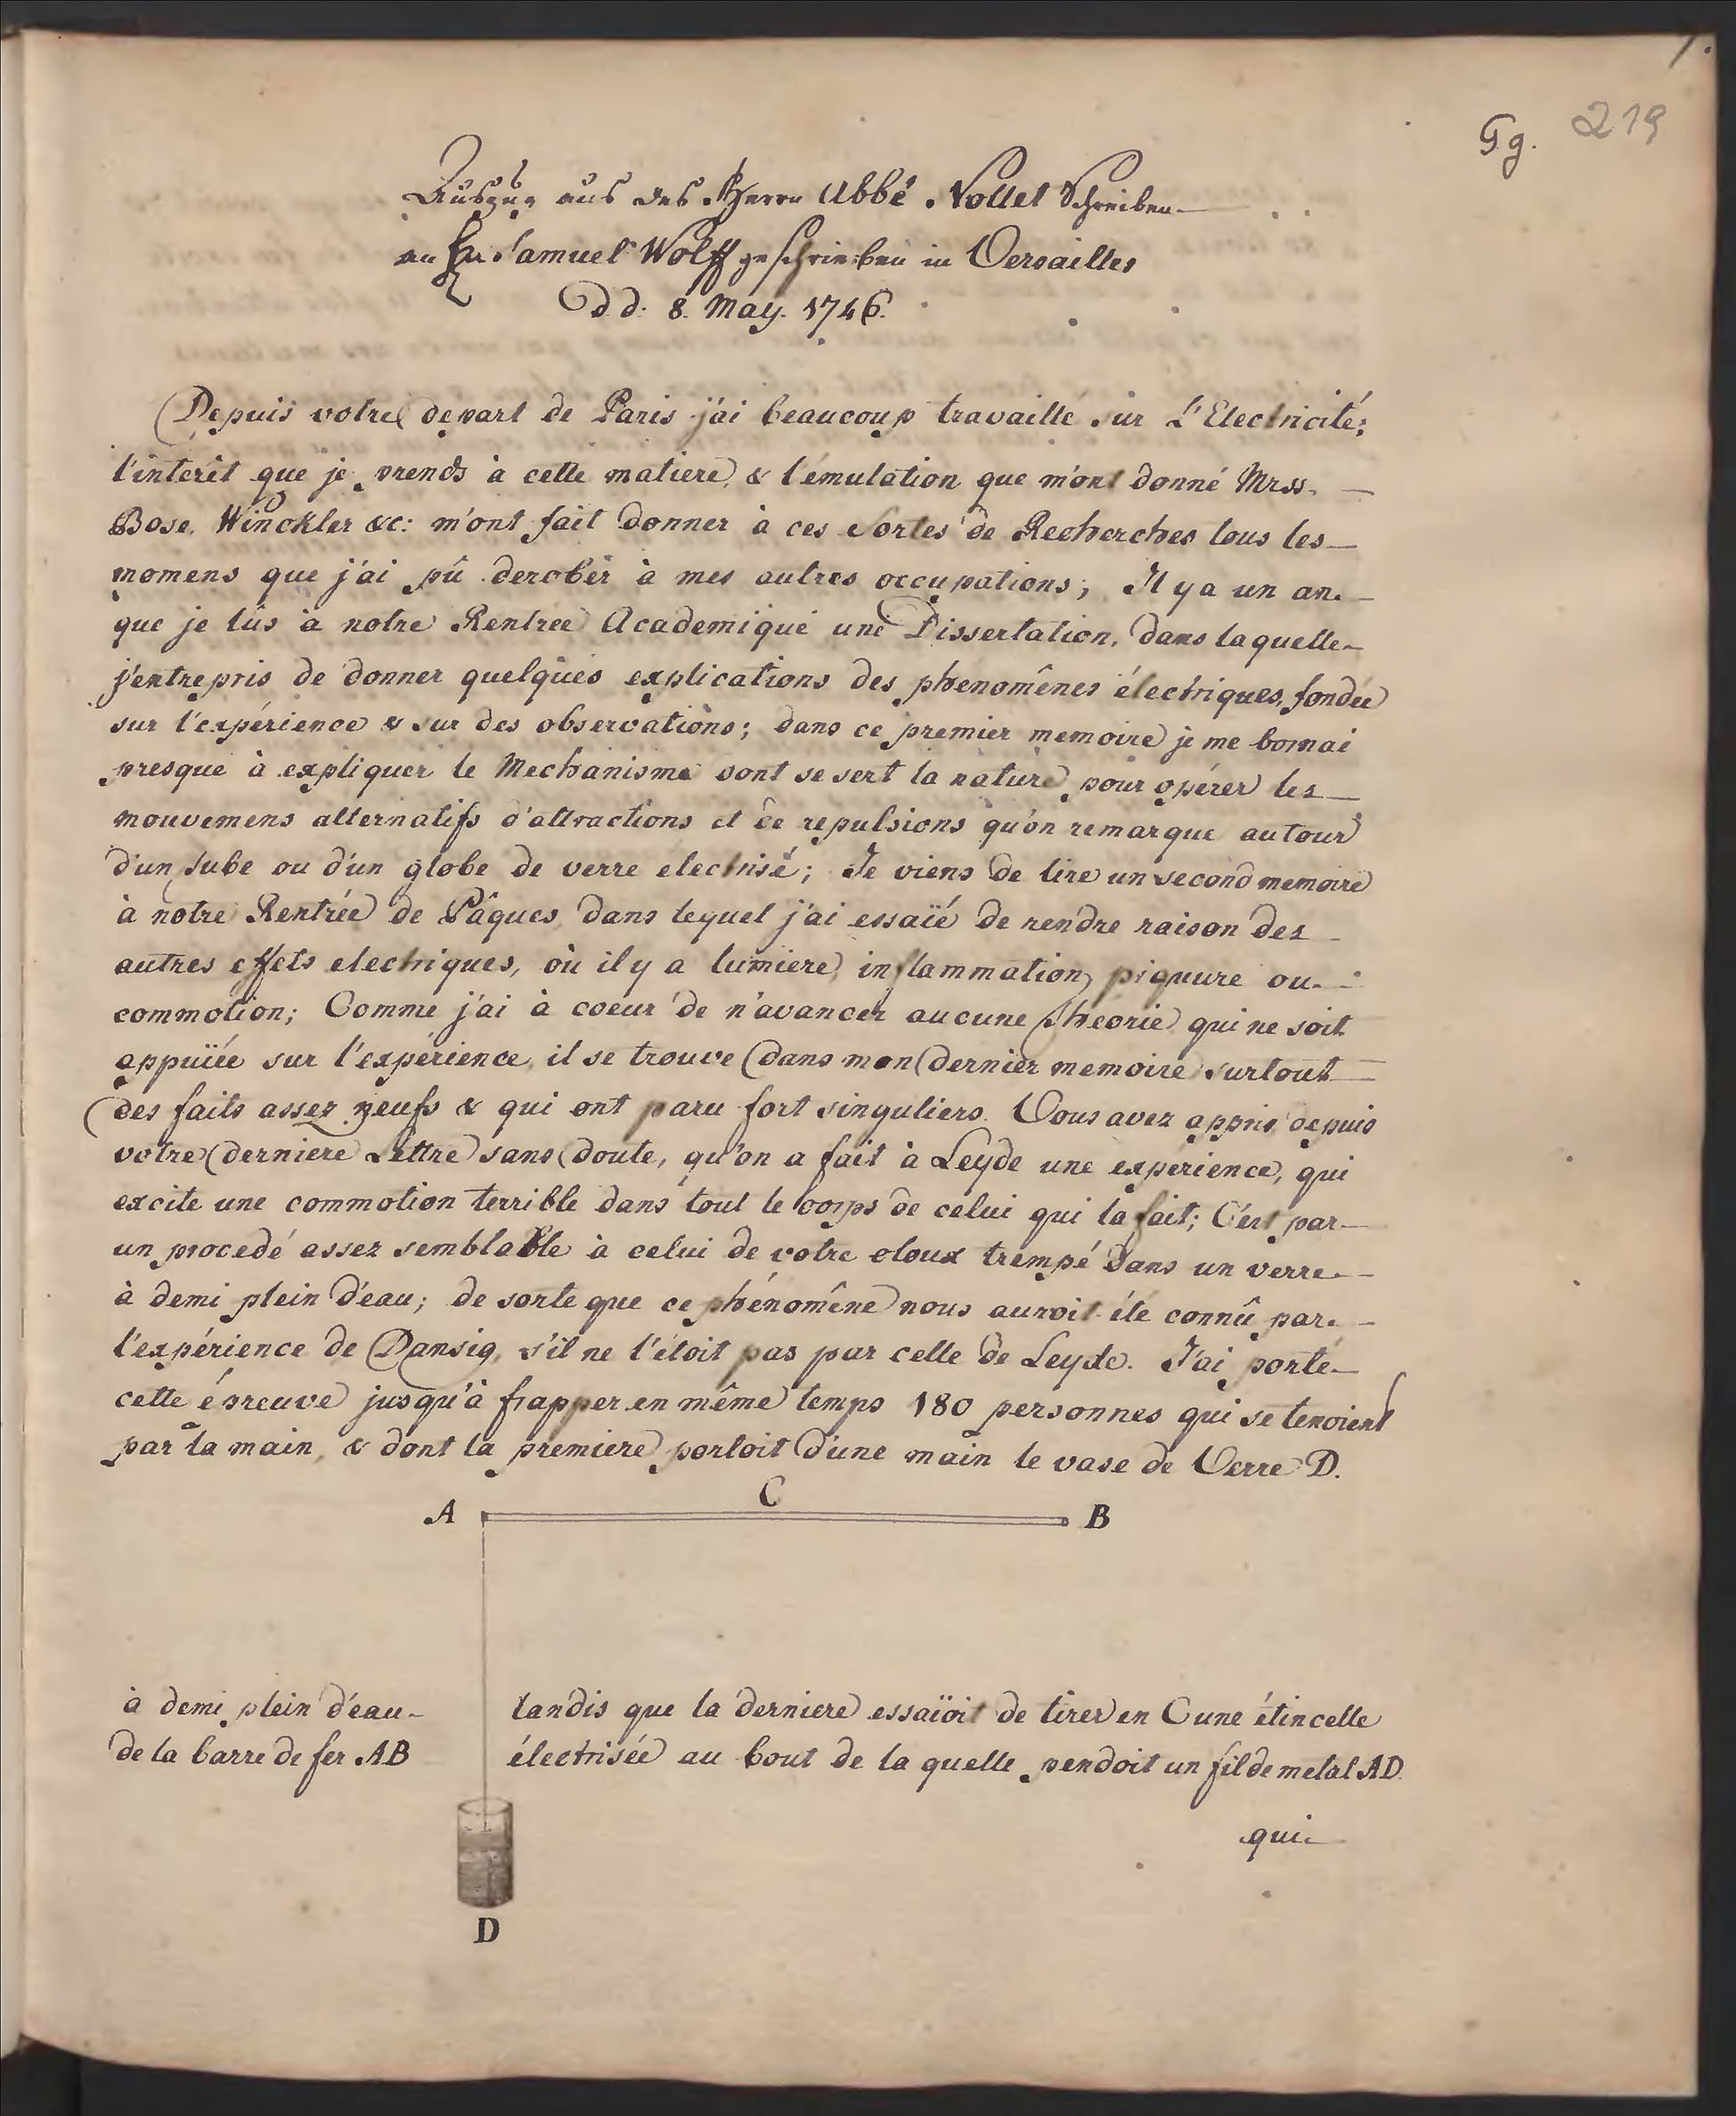 1.
Gg. 219
Auszug aus des Herrn Abbé Nollet Schreiben
an Hn. Samuel Wolff geschrieben in Versailles
d. d. 8. May. 1746.
Depuis votre depart de Paris j'ai beaucoup travaillé sur L'Electricité;
l'intérêt que je prends à cette matiere, & l'émulation que m'ont donné Mrss.
Bose, Winckler &c: m'ont fait donner à ces Sortes de Recherches tous les
momens que j'ai pû derober à mes autres occupations; Il y a un an
que je lûs à notre Rentree Academique une Dissertation, dans laquelle
j'entrepris de donner quelques explications des phenomênes électriques, fondée
sur l'expérience & sur des observations; dans ce premier memoire je me bornai
presque à expliquer le Mechanisme dont se sert la nature pour opérer les
mouvemens alternatifs d'attractions et de repulsions qu'on remarque autour
d'un Tube ou d'un globe de verre electrisé; Je viens de lire un second memoire
à notre Rentrée de Pâques, dans lequel j'ai essaïé de rendre raison des
autres effets electriques, où il y a lumiere, inflammation, piquure ou
commotion; Comme j'ai à coeur de n'avancer aucune Theorie qui ne soit
appuïée sur l'expérience, il se trouve dans mon dernier memoire surtout
des faits assez neufs & qui ont paru fort singuliers. Vous avez appris depuis
votre derniere Lettre sans doute, qu'on a fait à Leyde une experience, qui
excite une commotion terrible dans tout le corps de celui qui la fait; C'est par
un procedé assez semblable à celui de votre cloux trempé dans un verre
à demi plein d'eau; de sorte que ce phénomêne nous auroit été connû par
l'expérience de Dansig, s'il ne l'étoit pas par celle de Leyde. J'ai porté
cette épreuve jusqu'à frapper en même temps 180 personnes qui se tenoient
par la main, & dont la premiere portoit d'une main le vase de Verre D.
A C B
à demi plein d'eau tandis que la derniere essaïoit de tirer en C une étincelle
de la barre de fer AB électrisée au bout de la quelle pendoit un fil de metal AD.
qui
D